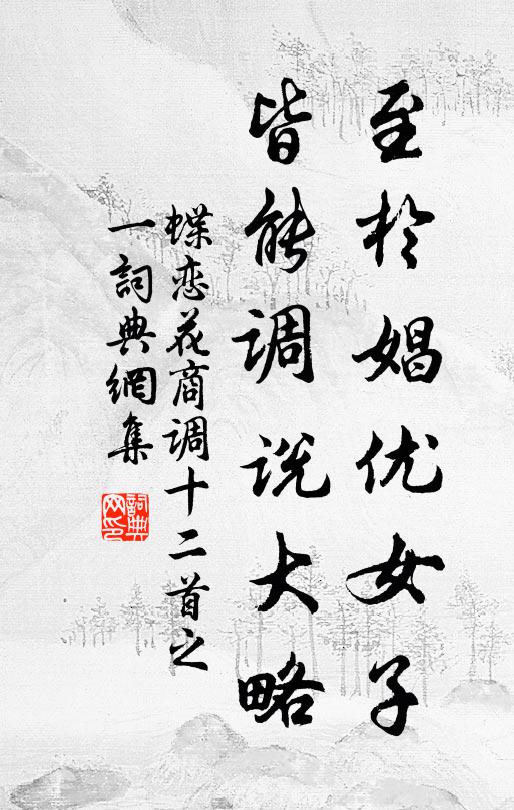 至於娼优女子
皆能调说大略
蝶恋花商调十二首之
一詞典網集
詞典
网印